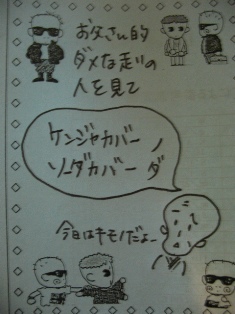 お父さん的
ダメな走りの
人を見て
ケンジャカバーノ
ソーダカバーダ
今日はキモノだよー